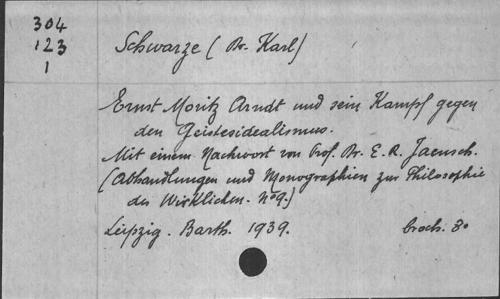 304
123
1
Schwarze (Dr. Karl)
Ernst Moritz Arndt und sein Kampf gegen
den Geistesidealismus.
Mit einem Nachwort von Prof. Dr. E. R. Jaensch.
(Abhandlungen und Monographien zur Philosophie
des Wirklichen. No9.)
Leipzig. Barth. 1939. broch. 8o